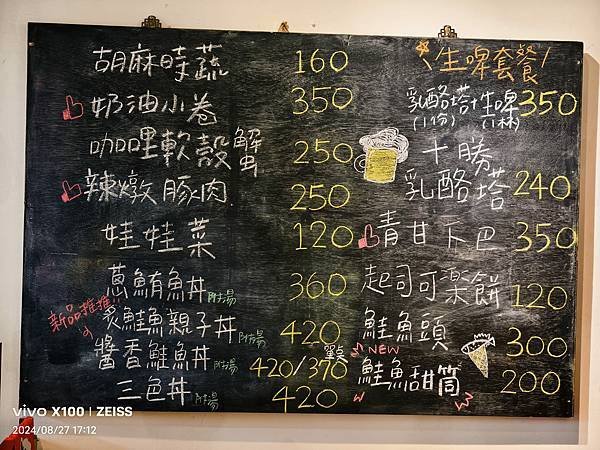 胡麻時蔬 160
奶油小卷 350
咖哩軟殼蟹 250
辣燉豚肉 250
娃娃菜 120
蔥鮪魚丼 附湯 360
新品推推
炙鮭魚親子丼 附湯 420
醬香鮭魚丼 附湯 420/370
三色丼 附湯 420
生啤套餐
乳酪塔+生啤 350
(1份) (1杯)
十勝
乳酪塔 240
青甘下巴 350
起司可樂餅 120
鮭魚頭 300
NEW
鮭魚甜筒 200
vivo X100 | ZEISS
2024/08/27 17:12